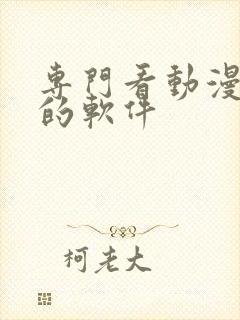 専門看動漫
的軟件
柯老大